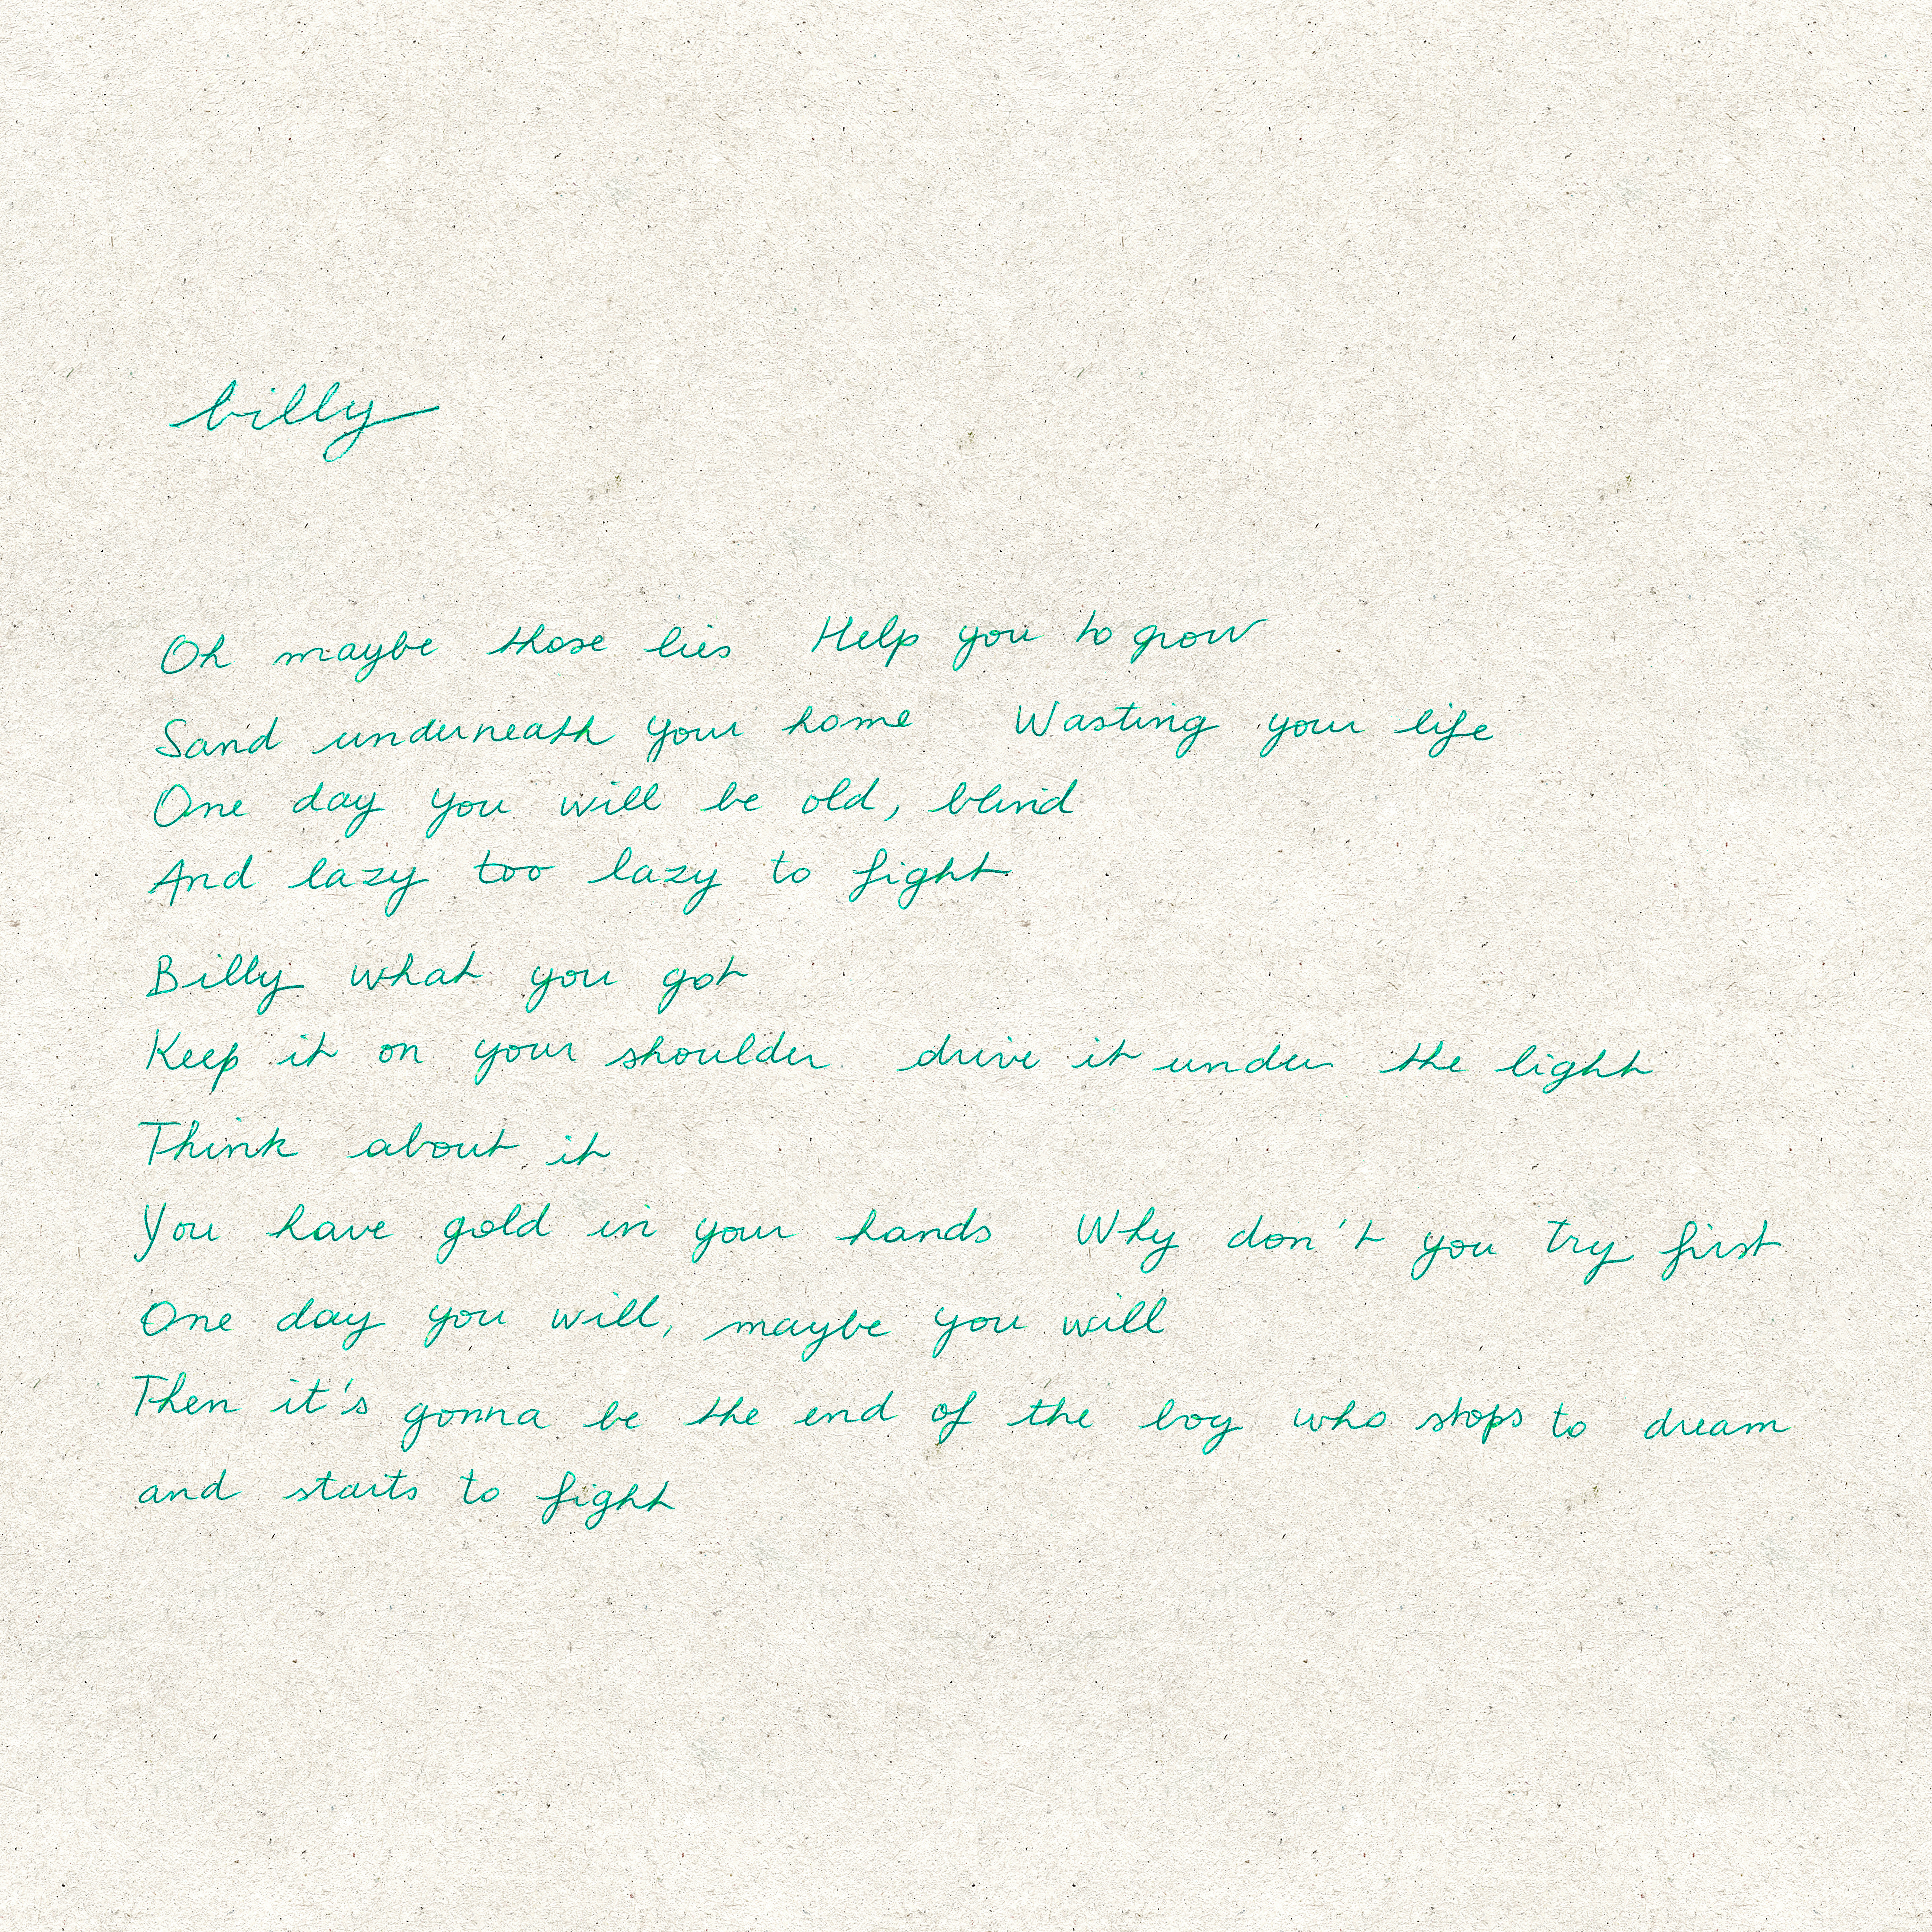 billy
Oh maybe those lies Help you to grow
Sand underneath your home Wasting your life
One day you will be old, blind
And lazy too lazy to fight
Billy what you got
Keep it on your shoulder drive it under the light
Think about it
You have gold in your hands Why don't you try first
One day you will, maybe you will
Then it's gonna be the end of the boy who stops to dream
and starts to fight